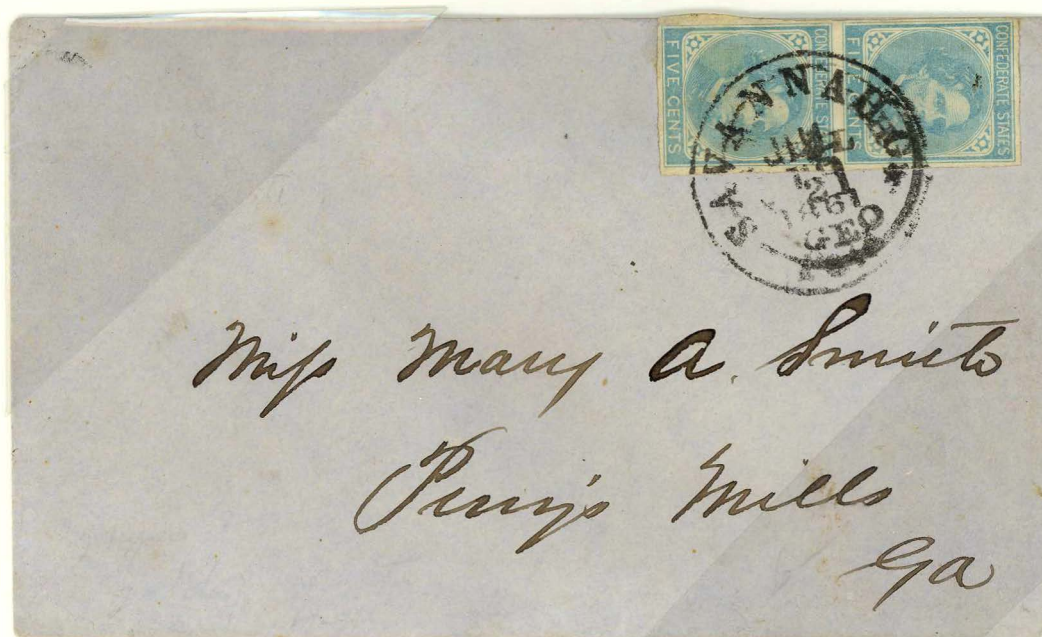 FIVE CENTS
CONFEDERATE STATES
FIVE CENTS
CONFEDERATE STATES
SAVANNAH
JUL
GEO
Miss Mary A. Smith
Perry's Mills
Ga